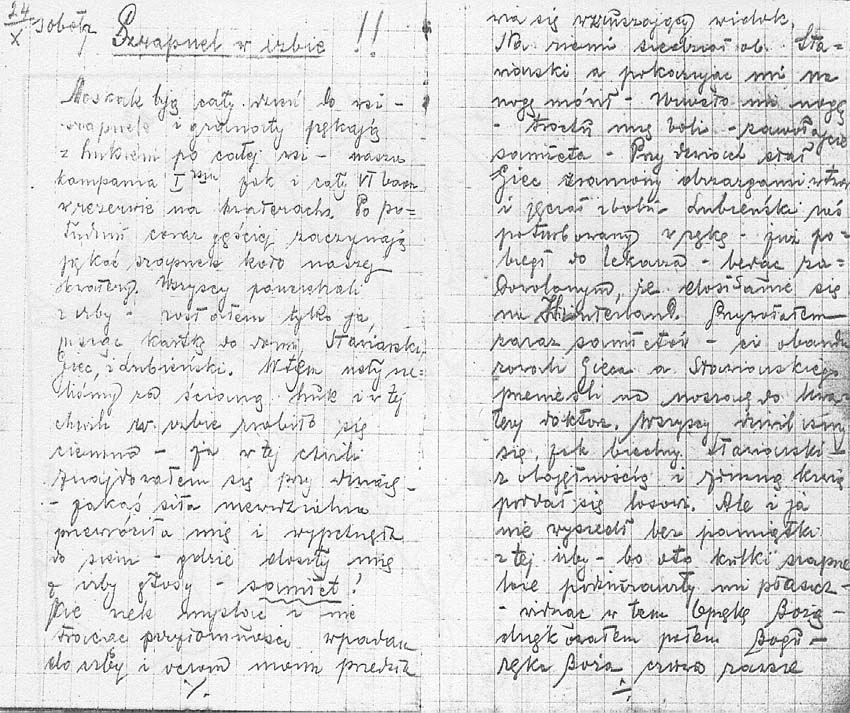 24/X sobota Szrapnel w izbie !!
Moskale biją cały dzień do wsi -
szrapnele i granaty pękają
z hukiem po całej wsi - nasza
kampania I jak i cały VI baon
w rezerwie na kwaterach. Po po=
łudniu coraz gęściej zaczynają
pękać szrapnele koło naszej
kwatery. Wszyscy pouciekali
z izby - zostałem tylko ja,
pisząc kartkę do domu, Staniarski,
Giec, i Lubieński. W tem usły
śmy za ścianą huk i w tej
chwili w izbie zrobiło się
ciemno - ja w tej chwili
znajdowałem się przy drzwiach
- jakaś siła niewidzialna
przewróciła mię i wypchnęła
do sieni - gdzie doszły mię
z izby głosy - sanität!
Nie wiele myśląc i nie
tracąc przytomności wpadam
do izby i oczom moim przedsta
%
wia się wzruszający widok.
Na ziemi siedział ob. Sta=
niarski a pokazując mi na
nogę mówił - urwało mi nogę
- trochę mię boli - zawołajcie
sanitäta - Przy drzwiach stał
Giec zraniony
i jęczał z bólu - Lubieński zaś
poturbowany w rękę - już po=
biegł do lekarza - będąc za=
dowolonym, że dostanie się
na Hinterland. Przywołałem
zaraz sanitetów - ci obanda
żowali Gieca a Staniarskiego
przenieśli na noszach do kwa
tery doktora. Wszyscy dziwiliśmy
się, jak biedny Staniarski -
z obojętnością i zimną krwią
poddał się losowi. Ale i ja
nie wyszedł bez pamiątki
z tej izby - bo oto kulki szrapne
lowe podziurawiły mi płaszcz -
- widząc w tem Opękę Bożą -
dziękowałem potem Bogu -
ręka Boża czuwa zawsze
%